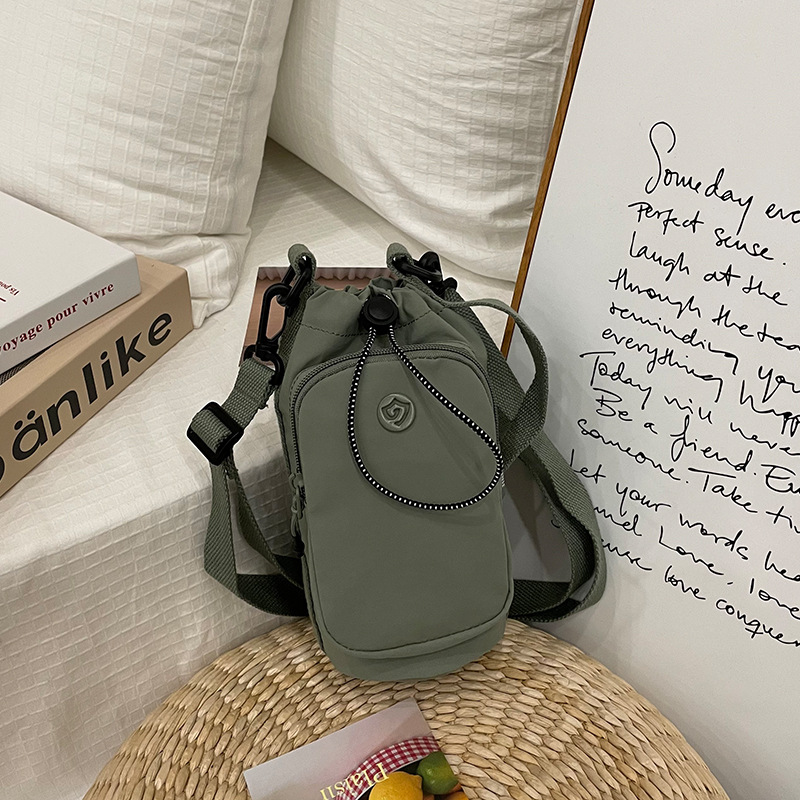 voyage pour vivre
änlike
Someday eve
Perfect sense.
laugh at the
through the tea
reminding you
everything happ
Today will never
Be a friend. En
someone. Take ti
let your words hea
Love, love
love conquer
Platsu